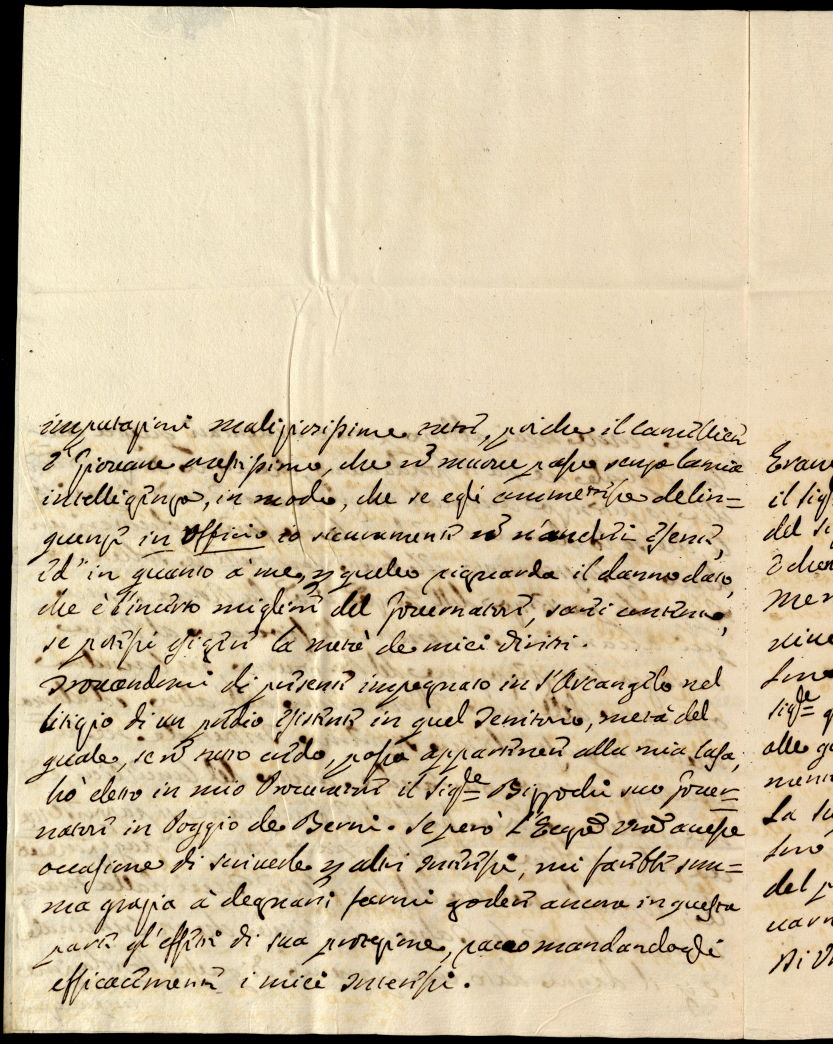 imputazioni maliziosissime tutte, poiche il Cancelliere
è Giovane onestissimo, che nõ muove passo senza la mia
intelligenza, in modo, che se egli commettesse delin=
quenze in Officio io sicuramente nõ n'anderei esente,
ed in quanto à me, p quello riguarda il danno dato,
che è l'incerto migliore del Governatore, sarei contento,
se potessi esigere la metà de miei diritti.
Trovandomi di presente impegnato in S. Arcangelo nel
litigio di un predio esistente in quel Territorio, metà del
quale, se nõ tutto credo, possa appartenere alla mia Casa,
hò eletto in mio Procuratore il Sigre Bizzochi suo Gover=
natore in Poggio de Berni. Se però L'Ecza Vra avesse
occasione di scrivere p altri interessi, mi farebbe som=
ma grazia à degnarsi farmi godere ancora in questa
parte gl'effetti di sua protezione, raccomandandogli
efficacemente i miei interessi.
il Sig
del